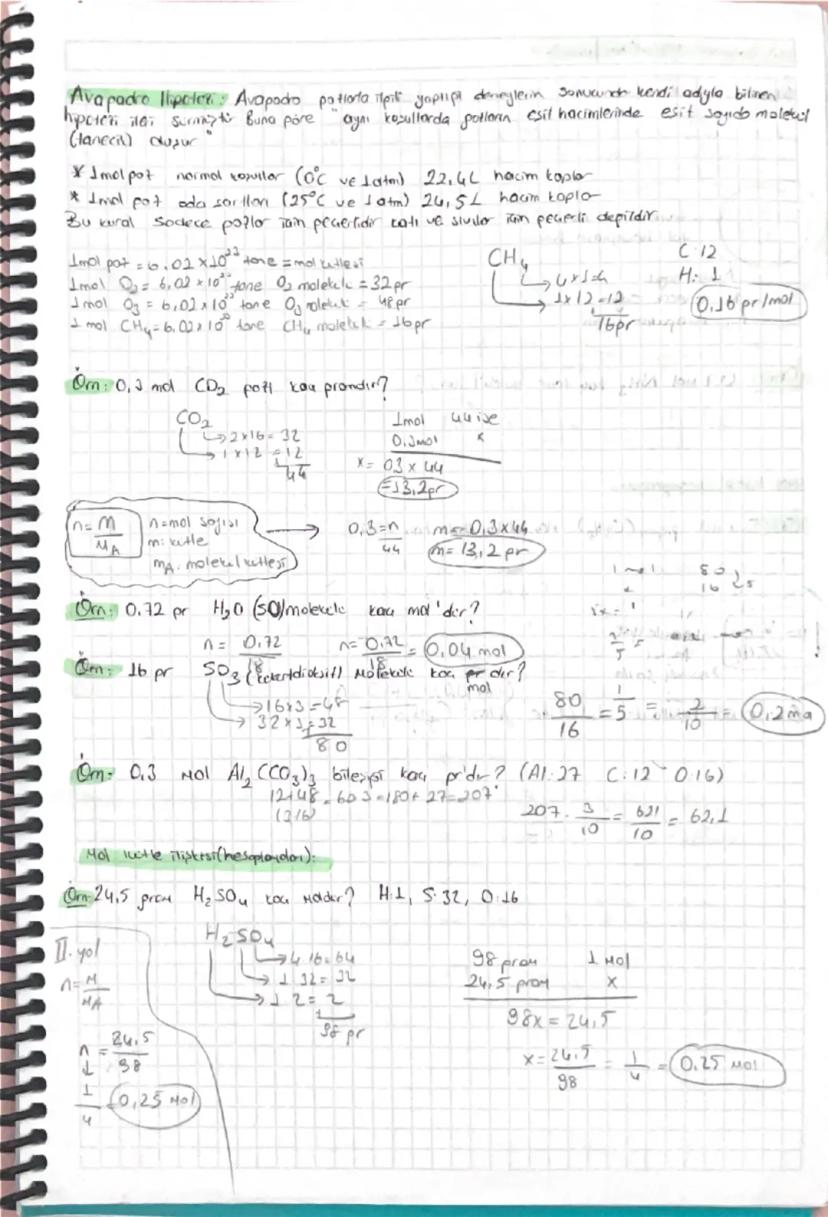 Avagadro Hipotezi: Avagadro gazlarla ilgili yaptığı deneylerin sonucunda kendi adıyla bilinen
hipotezi ileri sürmüştür Buna göre "aynı koşullarda gazların eşit hacimlerinde eşit sayıda molekül
(tanecik) düşür"
* 1mol gaz normal koşullar (0°C ve 1atm) 22,4L hacim kaplar
* 1mol gaz oda şartları (25°C ve 1atm) 24,5L hacim kaplar
Bu kural sadece gazlar için geçerlidir katı ve sıvılar için geçerli değildir.
1mol gaz = 6.02 x10²³ tane = mol kütlesi
1mol O₂ = 6,02 x 10²³ tane O₂ molekülü = 32gr
1mol O₃ = 6,02 x 10²³ tane O₃ molekül = 48gr
1 mol CH₄ = 6.02 x 10²³ tane CH₄ molekülü = 16gr
CH₄ C:12
4x1=4 H: 1
1x12=12
16gr
0,16 gr/mol
Örn: 0,3 mol CO₂ gazı kaç gramdır?
CO₂ 1mol 44 ise
2x16=32 0.3mol x
1x12=12
44
x= 0.3 x 44
=13,2gr
n= m/MA n=mol sayısı
m: kütle
mA: molekül kütlesi
0,3=n/44 m= 0,3x44
m= 13,2 gr
80
16
Örn: 0.72 gr H₂O (SU)molekülü kaç mol'dür?
n= 0.72/18 n= 0.72/18 = 0,04 mol
Örn: 16 gr SO₃ Molekülü kaç gr dır?
mol
16x3=48
32x1=32
80
80/16 = 1/5 = 2/10 = 0,2
Örn: 0.3 mol Al₂(CO₃)₃ bileşiği kaç gr'dır? (Al:27 C:12 O:16)
12+48=60 3=180+27=207
(316)
207 . 3/10 = 621/10 = 62,1
Mol kütle ilişkisi(hesaplamaları):
Örn: 24,5 gram H₂SO₄ kaç moldür? H:1, S:32, O:16
H₂SO₄
4 16=64
1 32=32
1 2=2
98 gr
98 gram 1 mol
24,5 gram x
98x=24,5
x=24,5/98 = 1/4 = 0.25 mol
II. yol
n= M/MA
n= 24,5/98
1/4 0,25 mol